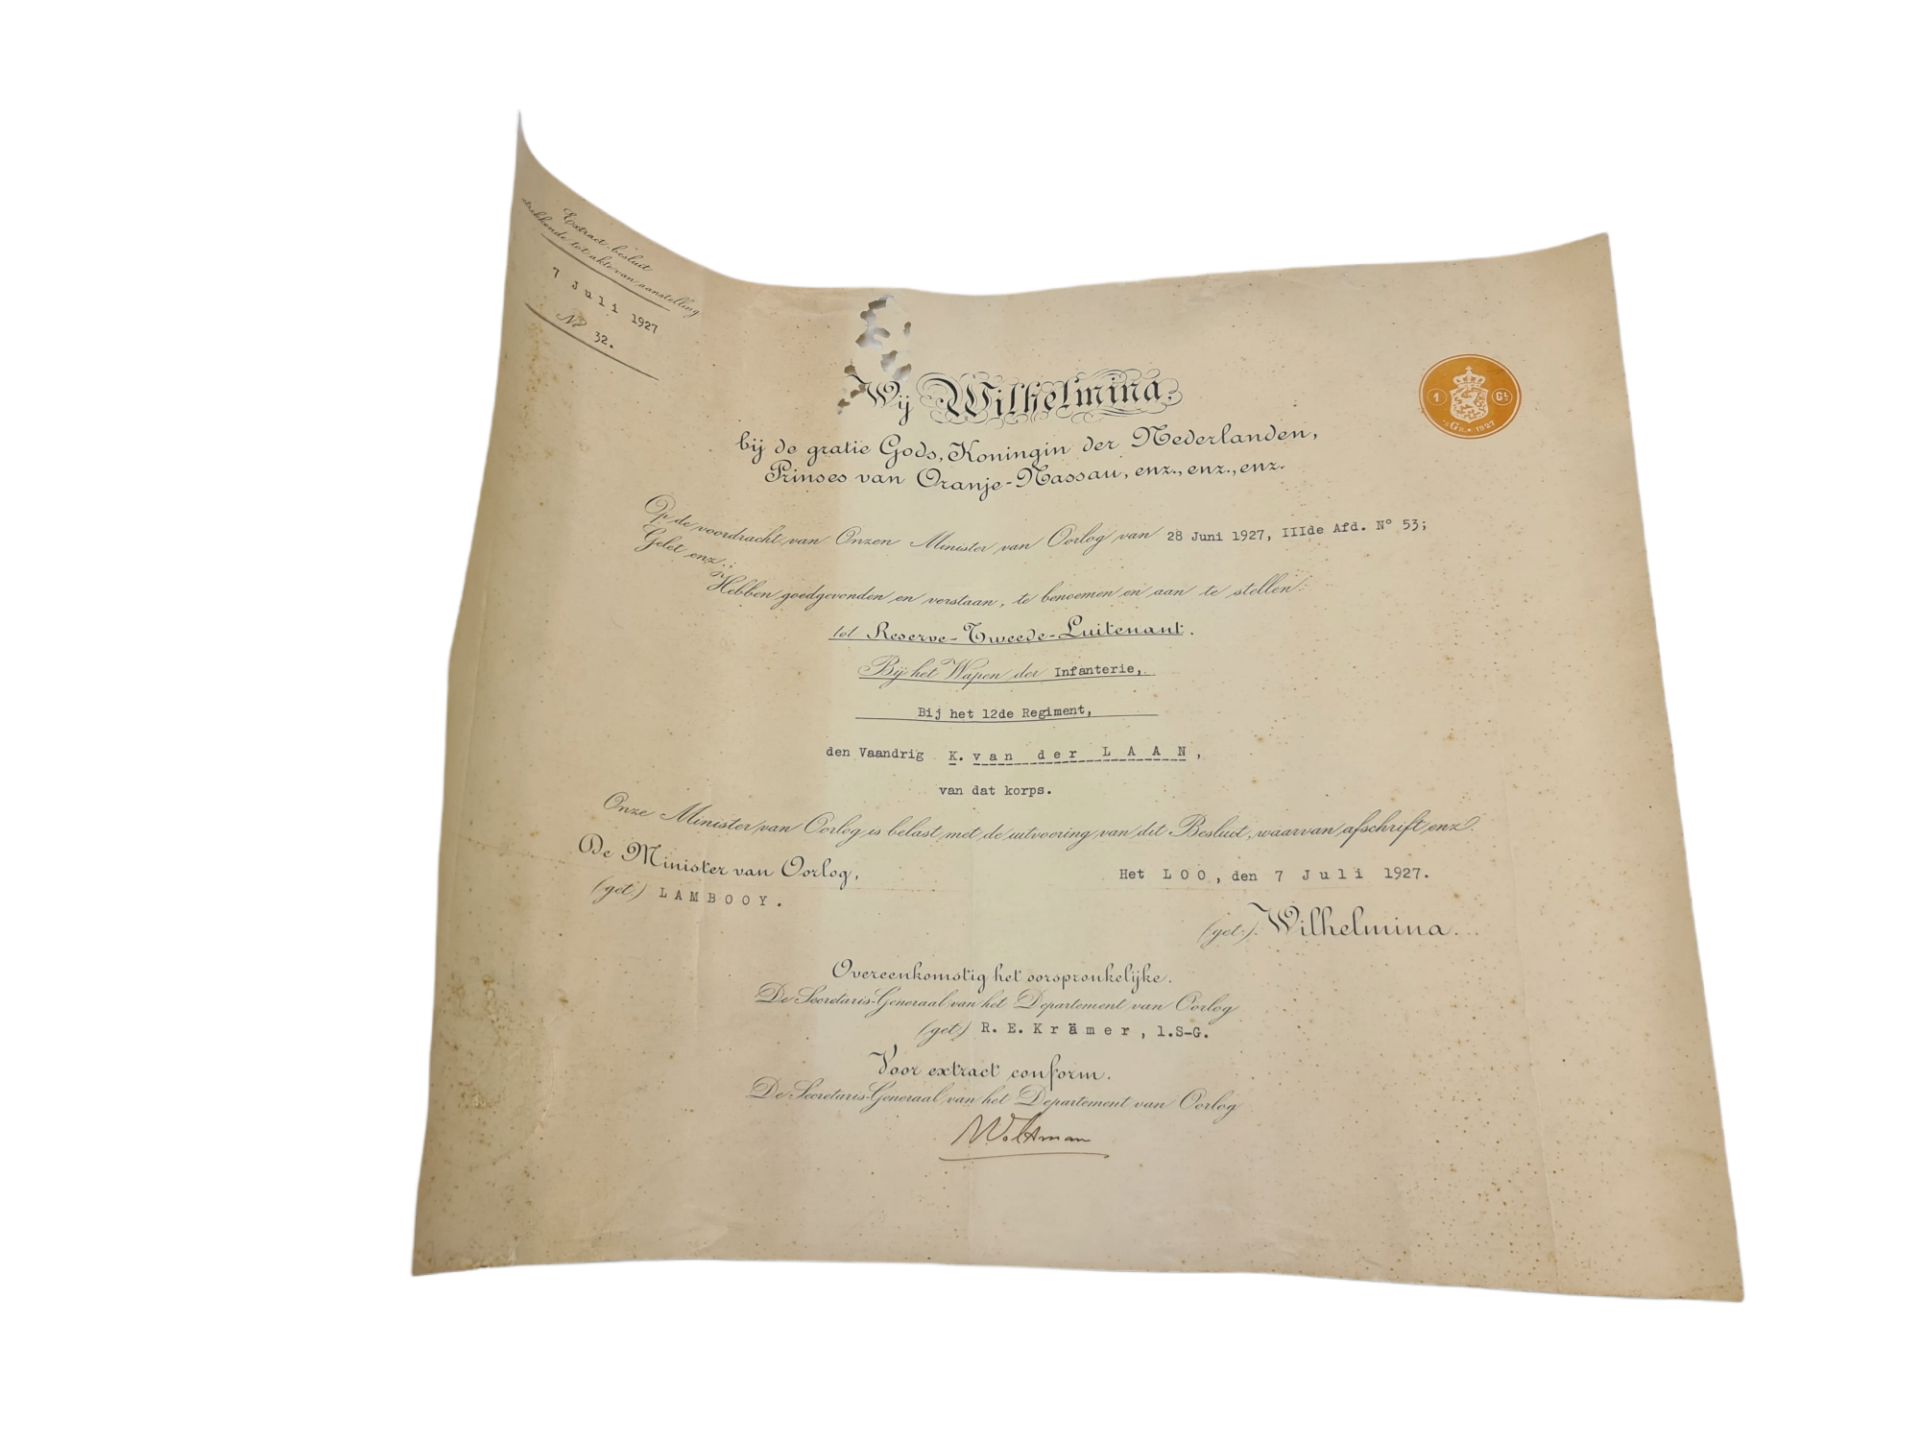 Extract-besluit
strekkende tot akte van aanstelling
7 Juli 1927
Nº 32.
Wij Wilhelmina,
bij de gratie Gods, Koningin der Nederlanden,
Prinses van Oranje-Nassau, enz., enz., enz.
1 Gt
1927
Op de voordracht van Onzen Minister van Oorlog van 28 Juni 1927, IIIde Afd. N° 53;
Gelet enz.;
Hebben goedgevonden en verstaan, te benoemen en aan te stellen:
tot Reserve-Tweede-Luitenant.
Bij het Wapen der Infanterie,
Bij het 12de Regiment,
den Vaandrig K. van der LAAN,
van dat korps.
Onze Minister van Oorlog is belast met de uitvoering van dit Besluit, waarvan afschrift enz.
De Minister van Oorlog,
(get.) LAMBOOY.
Het LOO, den 7 Juli 1927.
(get.) Wilhelmina.
Overeenkomstig het oorspronkelijke.
De Secretaris-Generaal van het Departement van Oorlog
(get.) R. E. Krämer, l.S-G.
Voor extract conform.
De Secretaris-Generaal van het Departement van Oorlog
Woltman